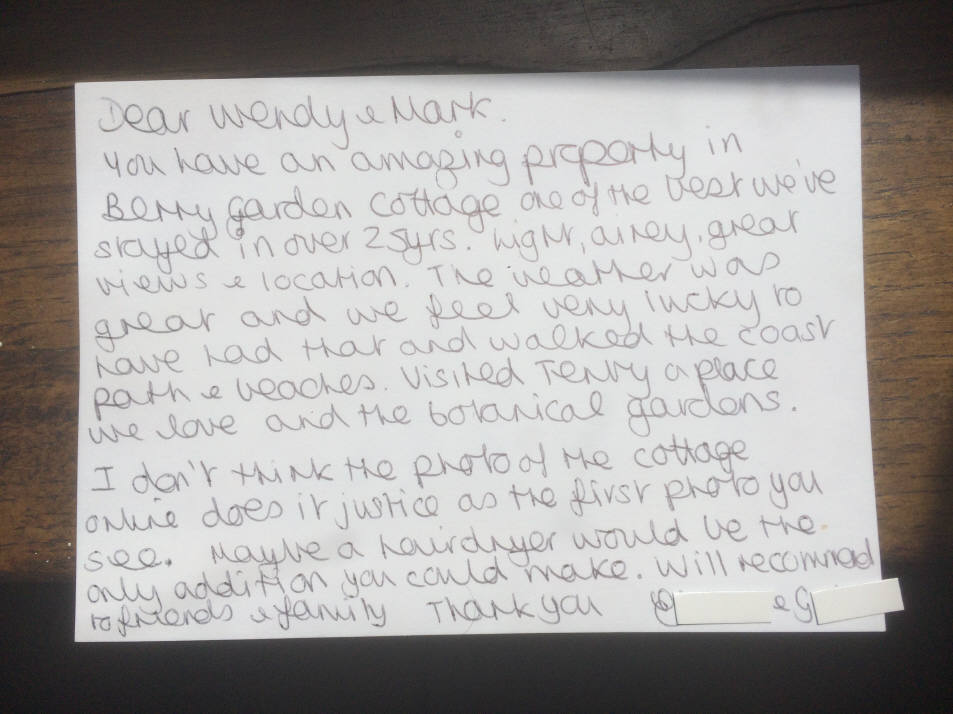 Dear Wendy & Mark.
You have an amazing property in
Berry Garden Cottage one of the best we've
stayed in over 25yrs. Light, airey, great
views & location. The weather was
great and we feel very lucky to
have had that and walked the coast
path & beaches. Visited Tenby a place
we love and the botanical gardens.
I don't think the photo of the cottage
online does it justice as the first photo you
see. Maybe a hairdryer would be the
only addition you could make. Will recommed
to friends & family Thank you & G